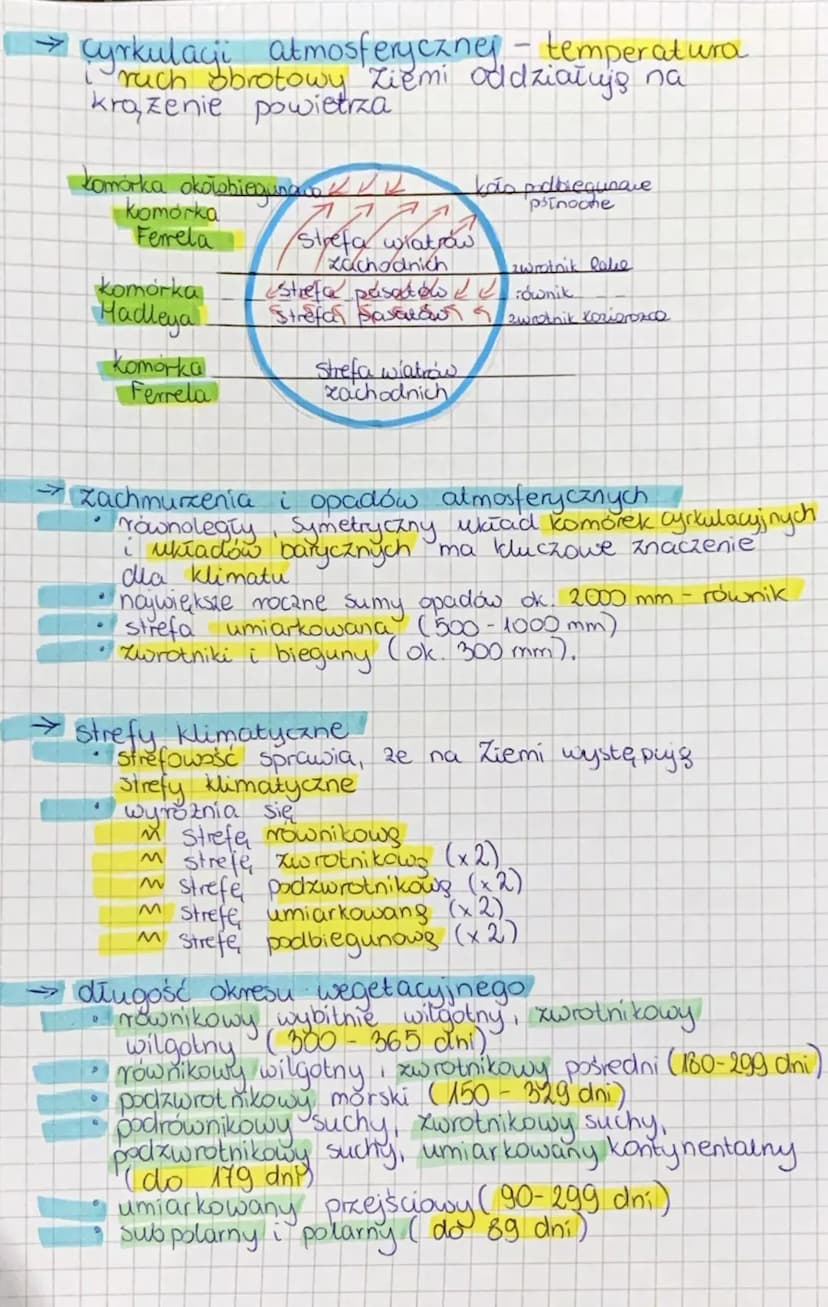 → cyrkulacji atmosferycznej - temperatura
i ruch obrotowy Ziemi oddziałują na
krążenie powietrza
komórka okołobiegunowa
koło podbiegunowe
północne
komórka
Ferrela
strefa wiatrów
zachodnich
zwrotnik Raka
komórka
Hadleya
strefa pasatów
równik
strefa pasatów
zwrotnik koziorożca
komórka
Ferrela
strefa wiatrów
zachodnich
→ zachmurzenia i opadów atmosferycznych
• równoległy, symetryczny układ komórek cyrkulacyjnych
i układów barycznych ma kluczowe znaczenie
dla klimatu
• największe roczne sumy opadów ok. 2000 mm - równik
• strefa umiarkowana (500-1000 mm)
• zwrotniki i bieguny (ok. 300 mm).
→ strefy klimatyczne
• strefowość sprawia, że na Ziemi występują
strefy klimatyczne
• wyróżnia się
~ strefę równikową
~ strefę zwrotnikową (x2)
~ strefę podzwrotnikową (x2)
~ strefę umiarkowaną (x2)
~ strefę podbiegunową (x2)
→ długość okresu wegetacyjnego
• równikowy wybitnie wilgotny, zwrotnikowy
wilgotny (300 - 365 dni)
• równikowy wilgotny, zwrotnikowy pośredni (180-299 dni)
• podzwrotnikowy morski (150 - 329 dni)
• podrównikowy suchy, zwrotnikowy suchy,
podzwrotnikowy suchy, umiarkowany kontynentalny
(do 179 dni)
• umiarkowany przejściowy (90-299 dni)
• subpolarny i polarny (do 89 dni)